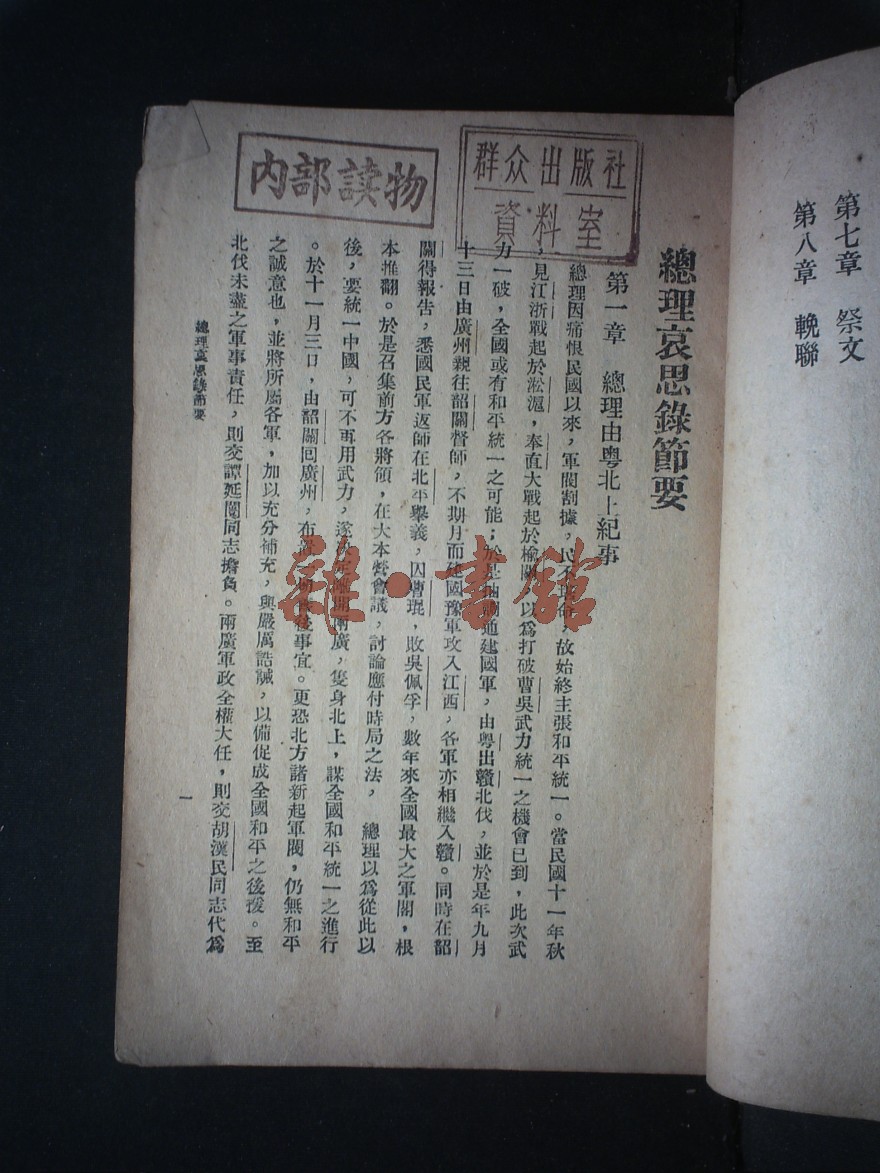 第七章　祭文
第八章　輓聯
群众出版社
資料室
内部读物
總理哀思錄節要
第一章　總理由粵北上紀事
總理因痛恨民國以來，軍閥割據，民不 故始終主張和平統一。當民國十一年秋
，見江浙戰起於淞滬，奉直大戰起於榆關，以爲打破曹吳武力統一之機會已到，此次武
力一破，全國或有和平統一之可能；於是 通建國軍，由粵出贛北伐，並於是年九月
十三日由廣州親往韶關督師，不期月而建國豫軍攻入江西，各軍亦相繼入贛。同時在韶
關得報告，悉國民軍返師在北平舉義，囚曹琨，敗吳佩孚，數年來全國最大之軍閥，根
本推翻。於是召集前方各將領，在大本營會議，討論應付時局之法，　總理以爲從此以
後，要統一中國，可不再用武力，遂決定離開兩廣，隻身北上，謀全國和平統一之進行
。於十一月三日，由韶關囘廣州，布置 後事宜。更恐北方諸新起軍閥，仍無和平
之誠意也，並將所屬各軍，加以充分補充，與嚴厲誥誡，以備促成全國和平之後援。至
北伐未盡之軍事責任，則交譚延闓同志擔負。兩廣軍政全權大任，則交胡漢民同志代爲
總理哀思錄節要
一
雜·書館